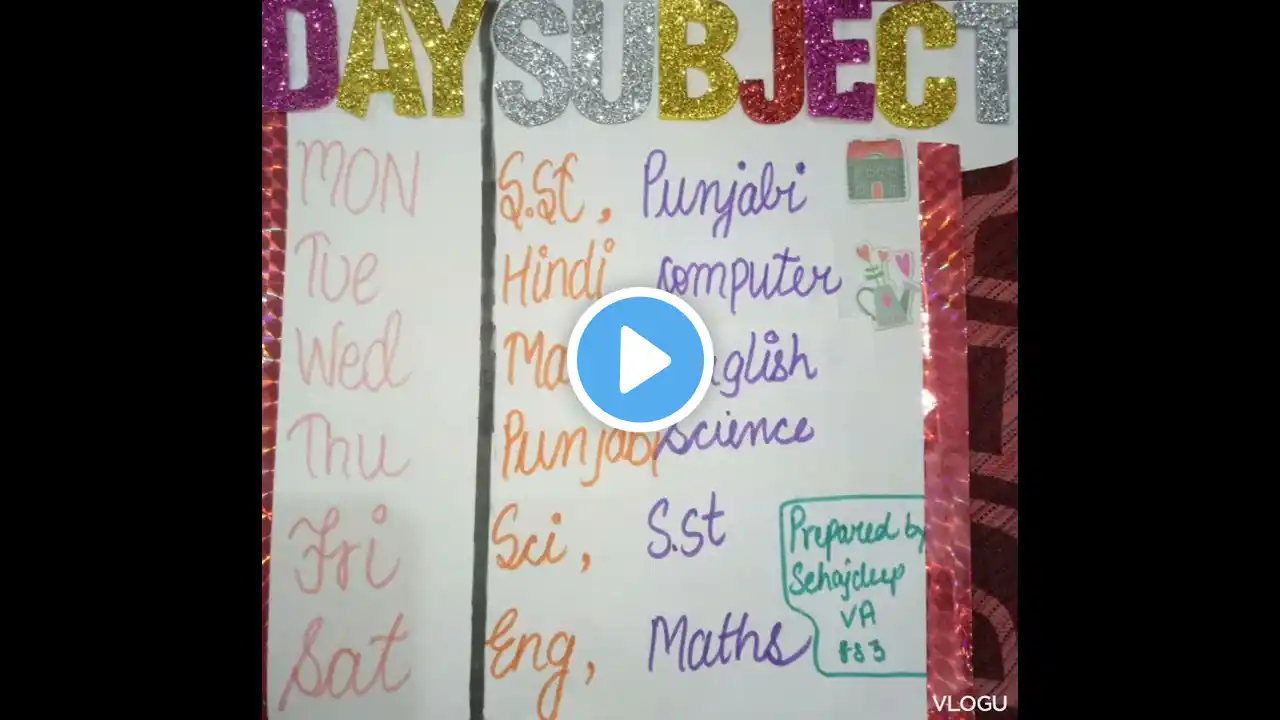 DAY SUBJECT
MON S.St, Punjabi
Tue Hindi computer
Wed Ma glish
Thu Punjabi science
Fri Sci, S.St
Sat Eng, Maths
Prepared by
Sehajdeep
VA
VLOGU